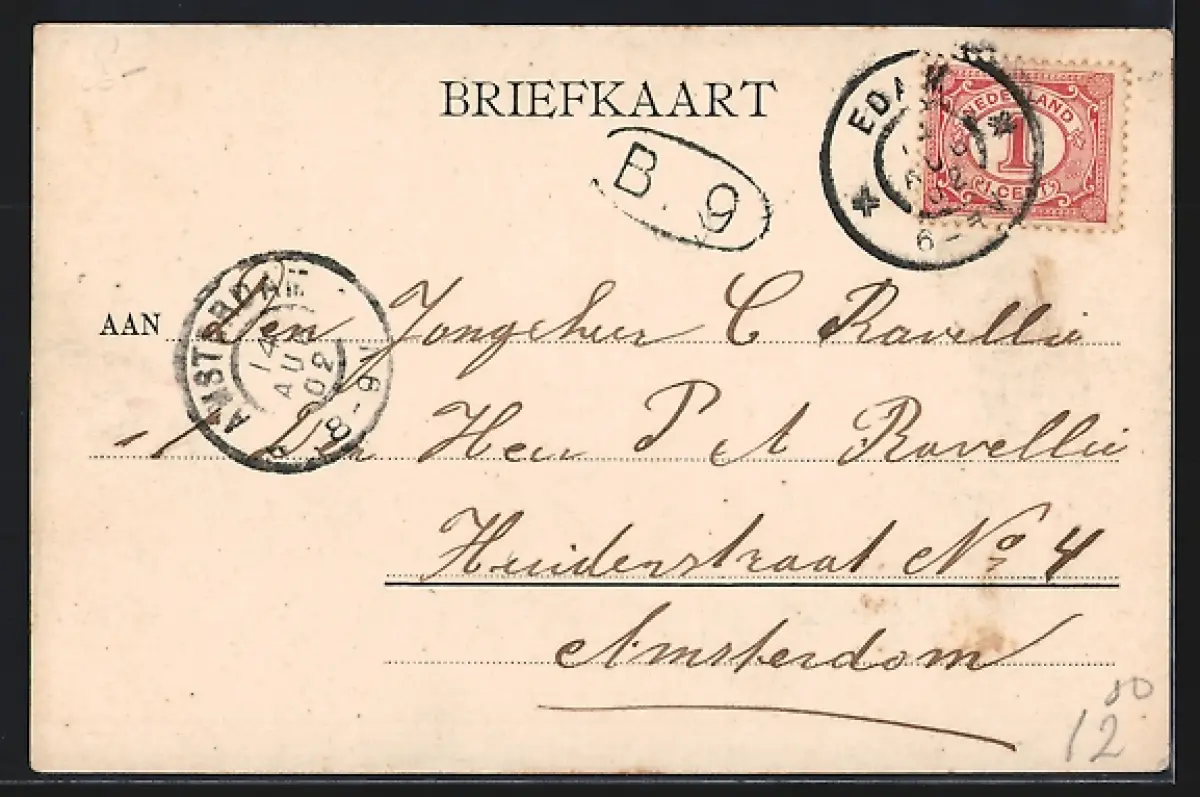 BRIEFKAART
EDAM
6-7N
NEDERLAND
1
(1 CENT)
B. 9
AMSTERDAM
14
AUG
02
8-9V
AAN Den Jongeheer C Ravellie
p/a Den Heer P A Ravellie
Huidenstraat No 4
Amsterdam
12 00